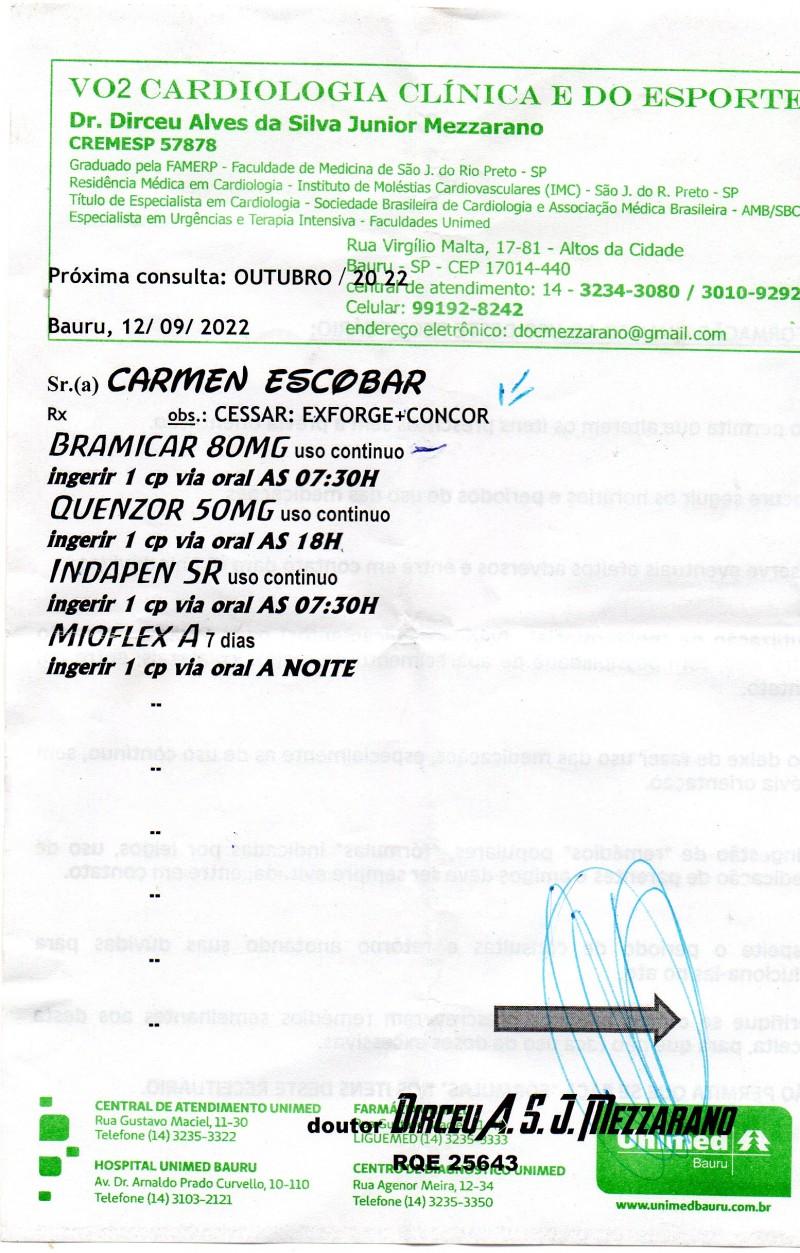 VO2 CARDIOLOGIA CLÍNICA E DO ESPORTE
Dr. Dirceu Alves da Silva Junior Mezzarano
CREMESP 57878
Graduado pela FAMERP - Faculdade de Medicina de São J. do Rio Preto - SP
Residência Médica em Cardiologia - Instituto de Moléstias Cardiovasculares (IMC) - São J. do R. Preto - SP
Título de Especialista em Cardiologia - Sociedade Brasileira de Cardiologia e Associação Médica Brasileira - AMB/SBC
Especialista em Urgências e Terapia Intensiva - Faculdades Unimed
Rua Virgílio Malta, 17-81 - Altos da Cidade
Bauru - SP - CEP 17014-440
Próxima consulta: OUTUBRO / 20 22
central de atendimento: 14 - 3234-3080 / 3010-9292
Celular: 99192-8242
Bauru, 12/ 09/ 2022
endereço eletrônico: docmezzarano@gmail.com
Sr.(a) CARMEN ESCOBAR
Rx obs.: CESSAR: EXFORGE+CONCOR
BRAMICAR 80MG uso continuo
ingerir 1 cp via oral AS 07:30H
QUENZOR 50MG uso continuo
ingerir 1 cp via oral AS 18H
INDAPEN SR uso continuo
ingerir 1 cp via oral AS 07:30H
MIOFLEX A 7 dias
ingerir 1 cp via oral A NOITE
--
--
--
--
--
--
CENTRAL DE ATENDIMENTO UNIMED
Rua Gustavo Maciel, 11-30
Telefone (14) 3235-3322
FARMÁCIA
LIGUEMED (14) 3235-3333
doutor DIRCEU A. S. J. MEZZARANO
RQE 25643
HOSPITAL UNIMED BAURU
Av. Dr. Arnaldo Prado Curvello, 10-110
Telefone (14) 3103-2121
CENTRO DE DIAGNÓSTICO UNIMED
Rua Agenor Meira, 12-34
Telefone (14) 3235-3350
Unimed
Bauru
www.unimedbauru.com.br